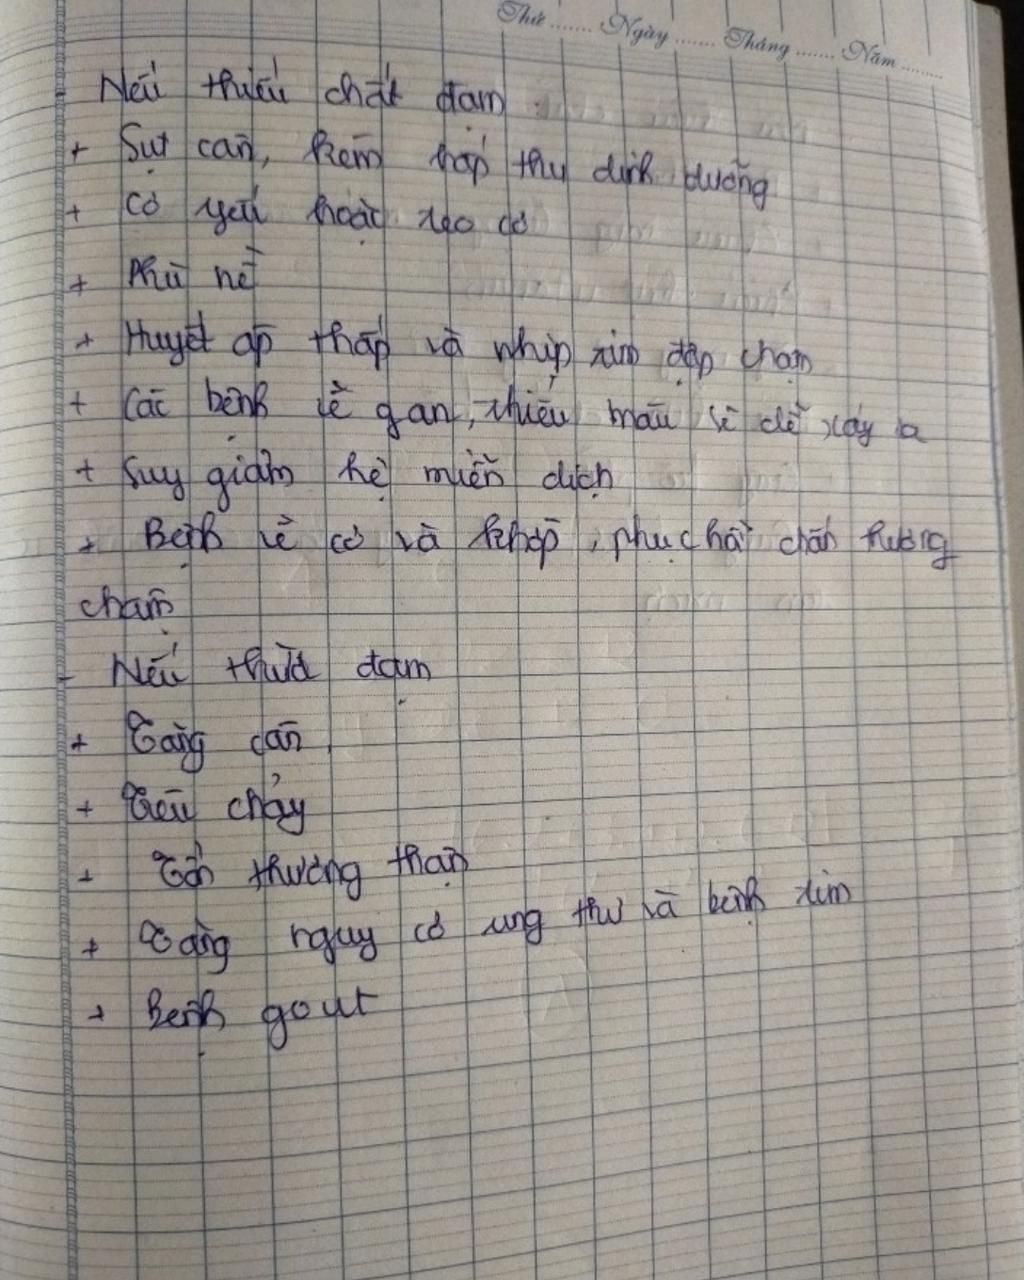 Thứ ....... Ngày ....... Tháng ....... Năm .......
- Nếu thiếu chất đạm
+ Sụt cân, kém hấp thụ dinh dưỡng
+ Cơ yếu hoặc teo cơ
+ Phù nề
+ Huyết áp thấp và nhịp tim đập chậm
+ Các bệnh về gan, thiếu máu sẽ dễ xảy ra
+ Suy giảm hệ miễn dịch
+ Bệnh về cơ và khớp, phục hồi chấn thương
chậm
- Nếu thừa đạm
+ Tăng cân
+ Tiêu chảy
+ Tổn thương thận
+ Tăng nguy cơ ung thư và bệnh tim
+ Bệnh gout